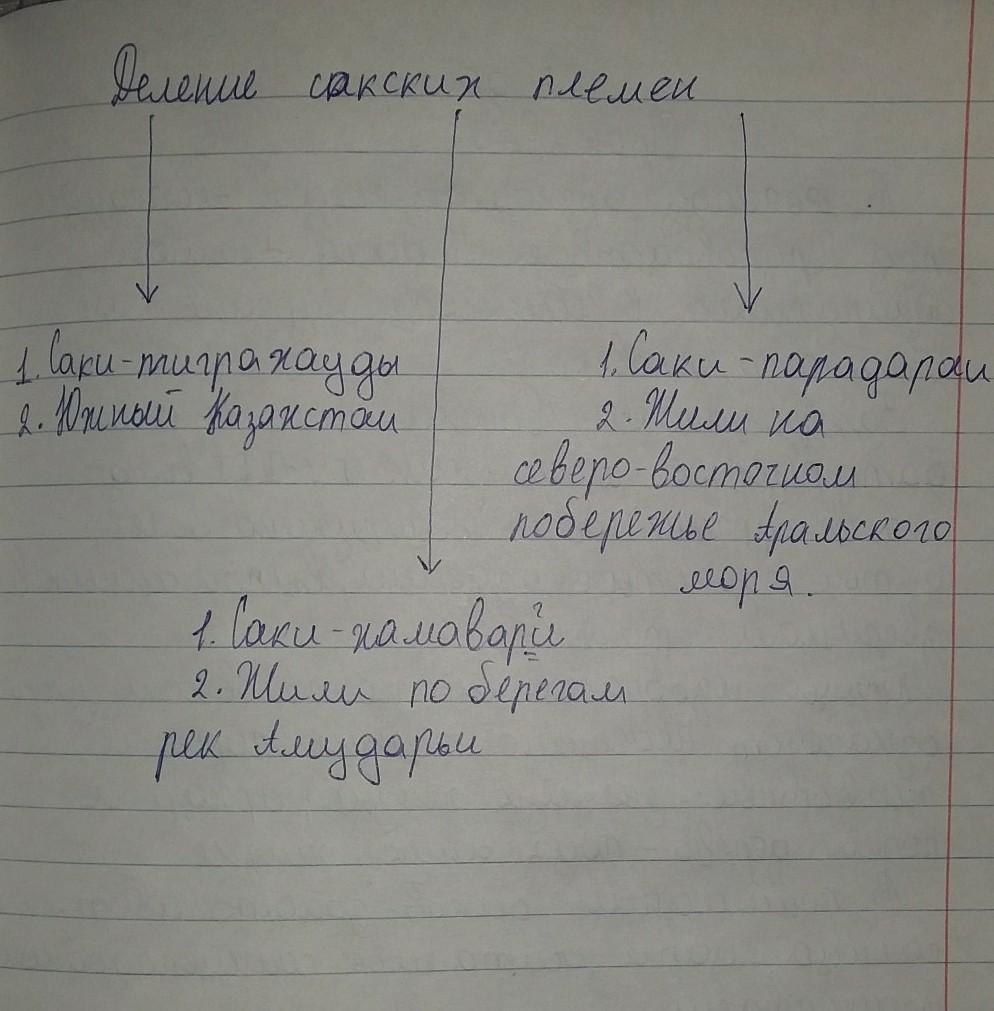 Деление сакских племен
1. Саки-тиграхауды
2. Южный Казахстан
1. Саки-парадараи
2. Жили на
северо-восточном
побережье Аральского
моря.
1. Саки-хамавар
2. Жили по берегам
рек Амударьи